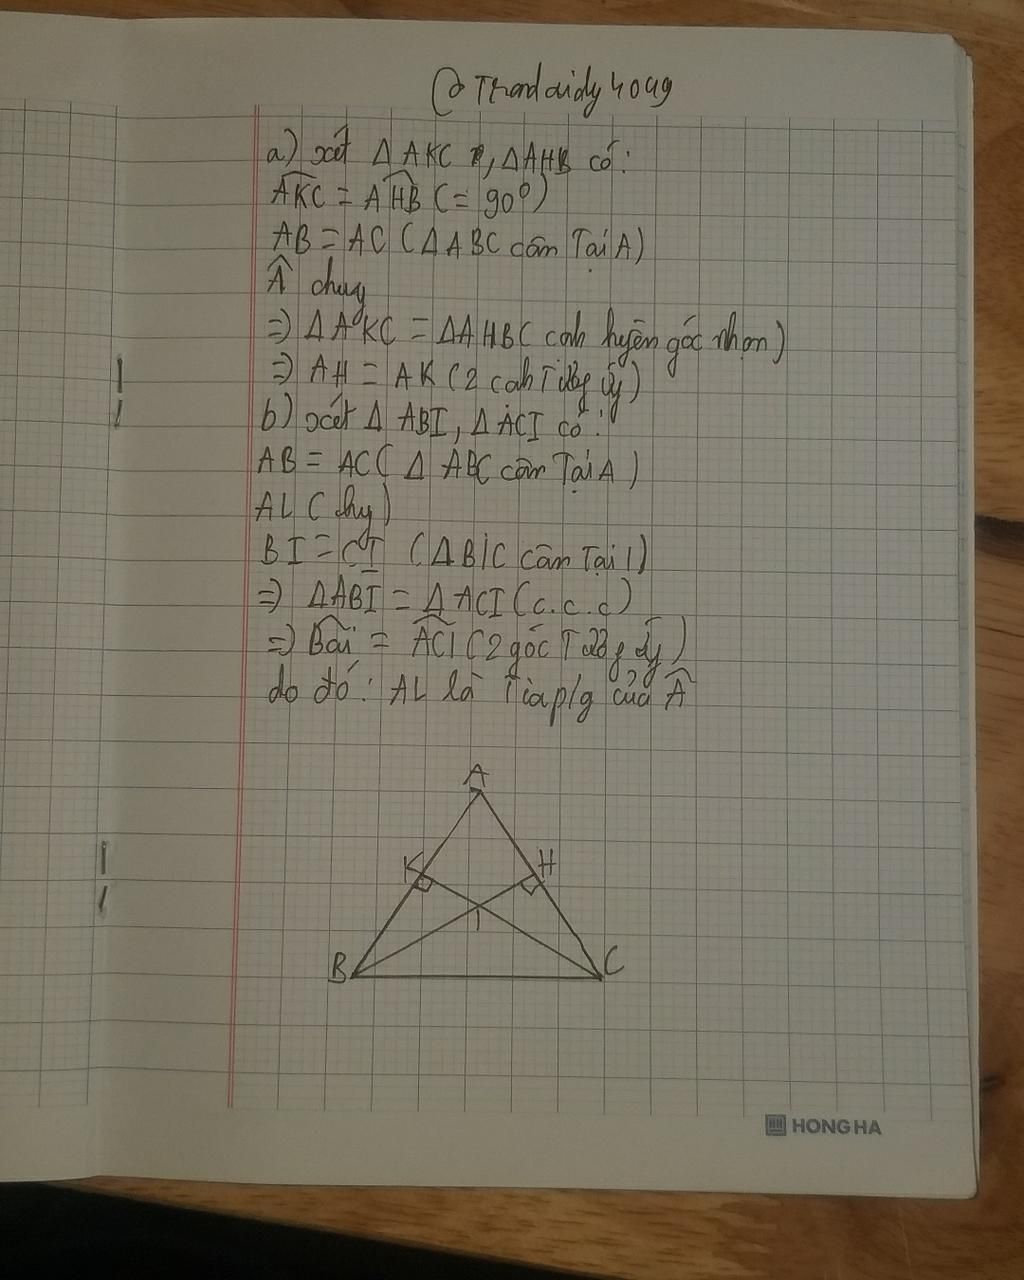 @Thandaidy4049
a) xét Δ AKC, ΔAHB có:
AKC = AHB (= 90°)
AB = AC (Δ ABC cân Tại A)
Â chung
=) Δ AKC = ΔAHB (cạnh huyền góc nhọn)
=) AH = AK (2 cạnh Tương ứng)
b) xét Δ ABI, Δ ACI có:
AB = AC (Δ ABC cân Tại A)
AI (chung)
BI = CI (Δ BIC cân Tại I)
=) ΔABI = Δ ACI (c.c.c)
=) = ACI (2 góc Tương ứng)
do đó: AI là Tia p/g của Â
A
K H
I
B C
HONG HA